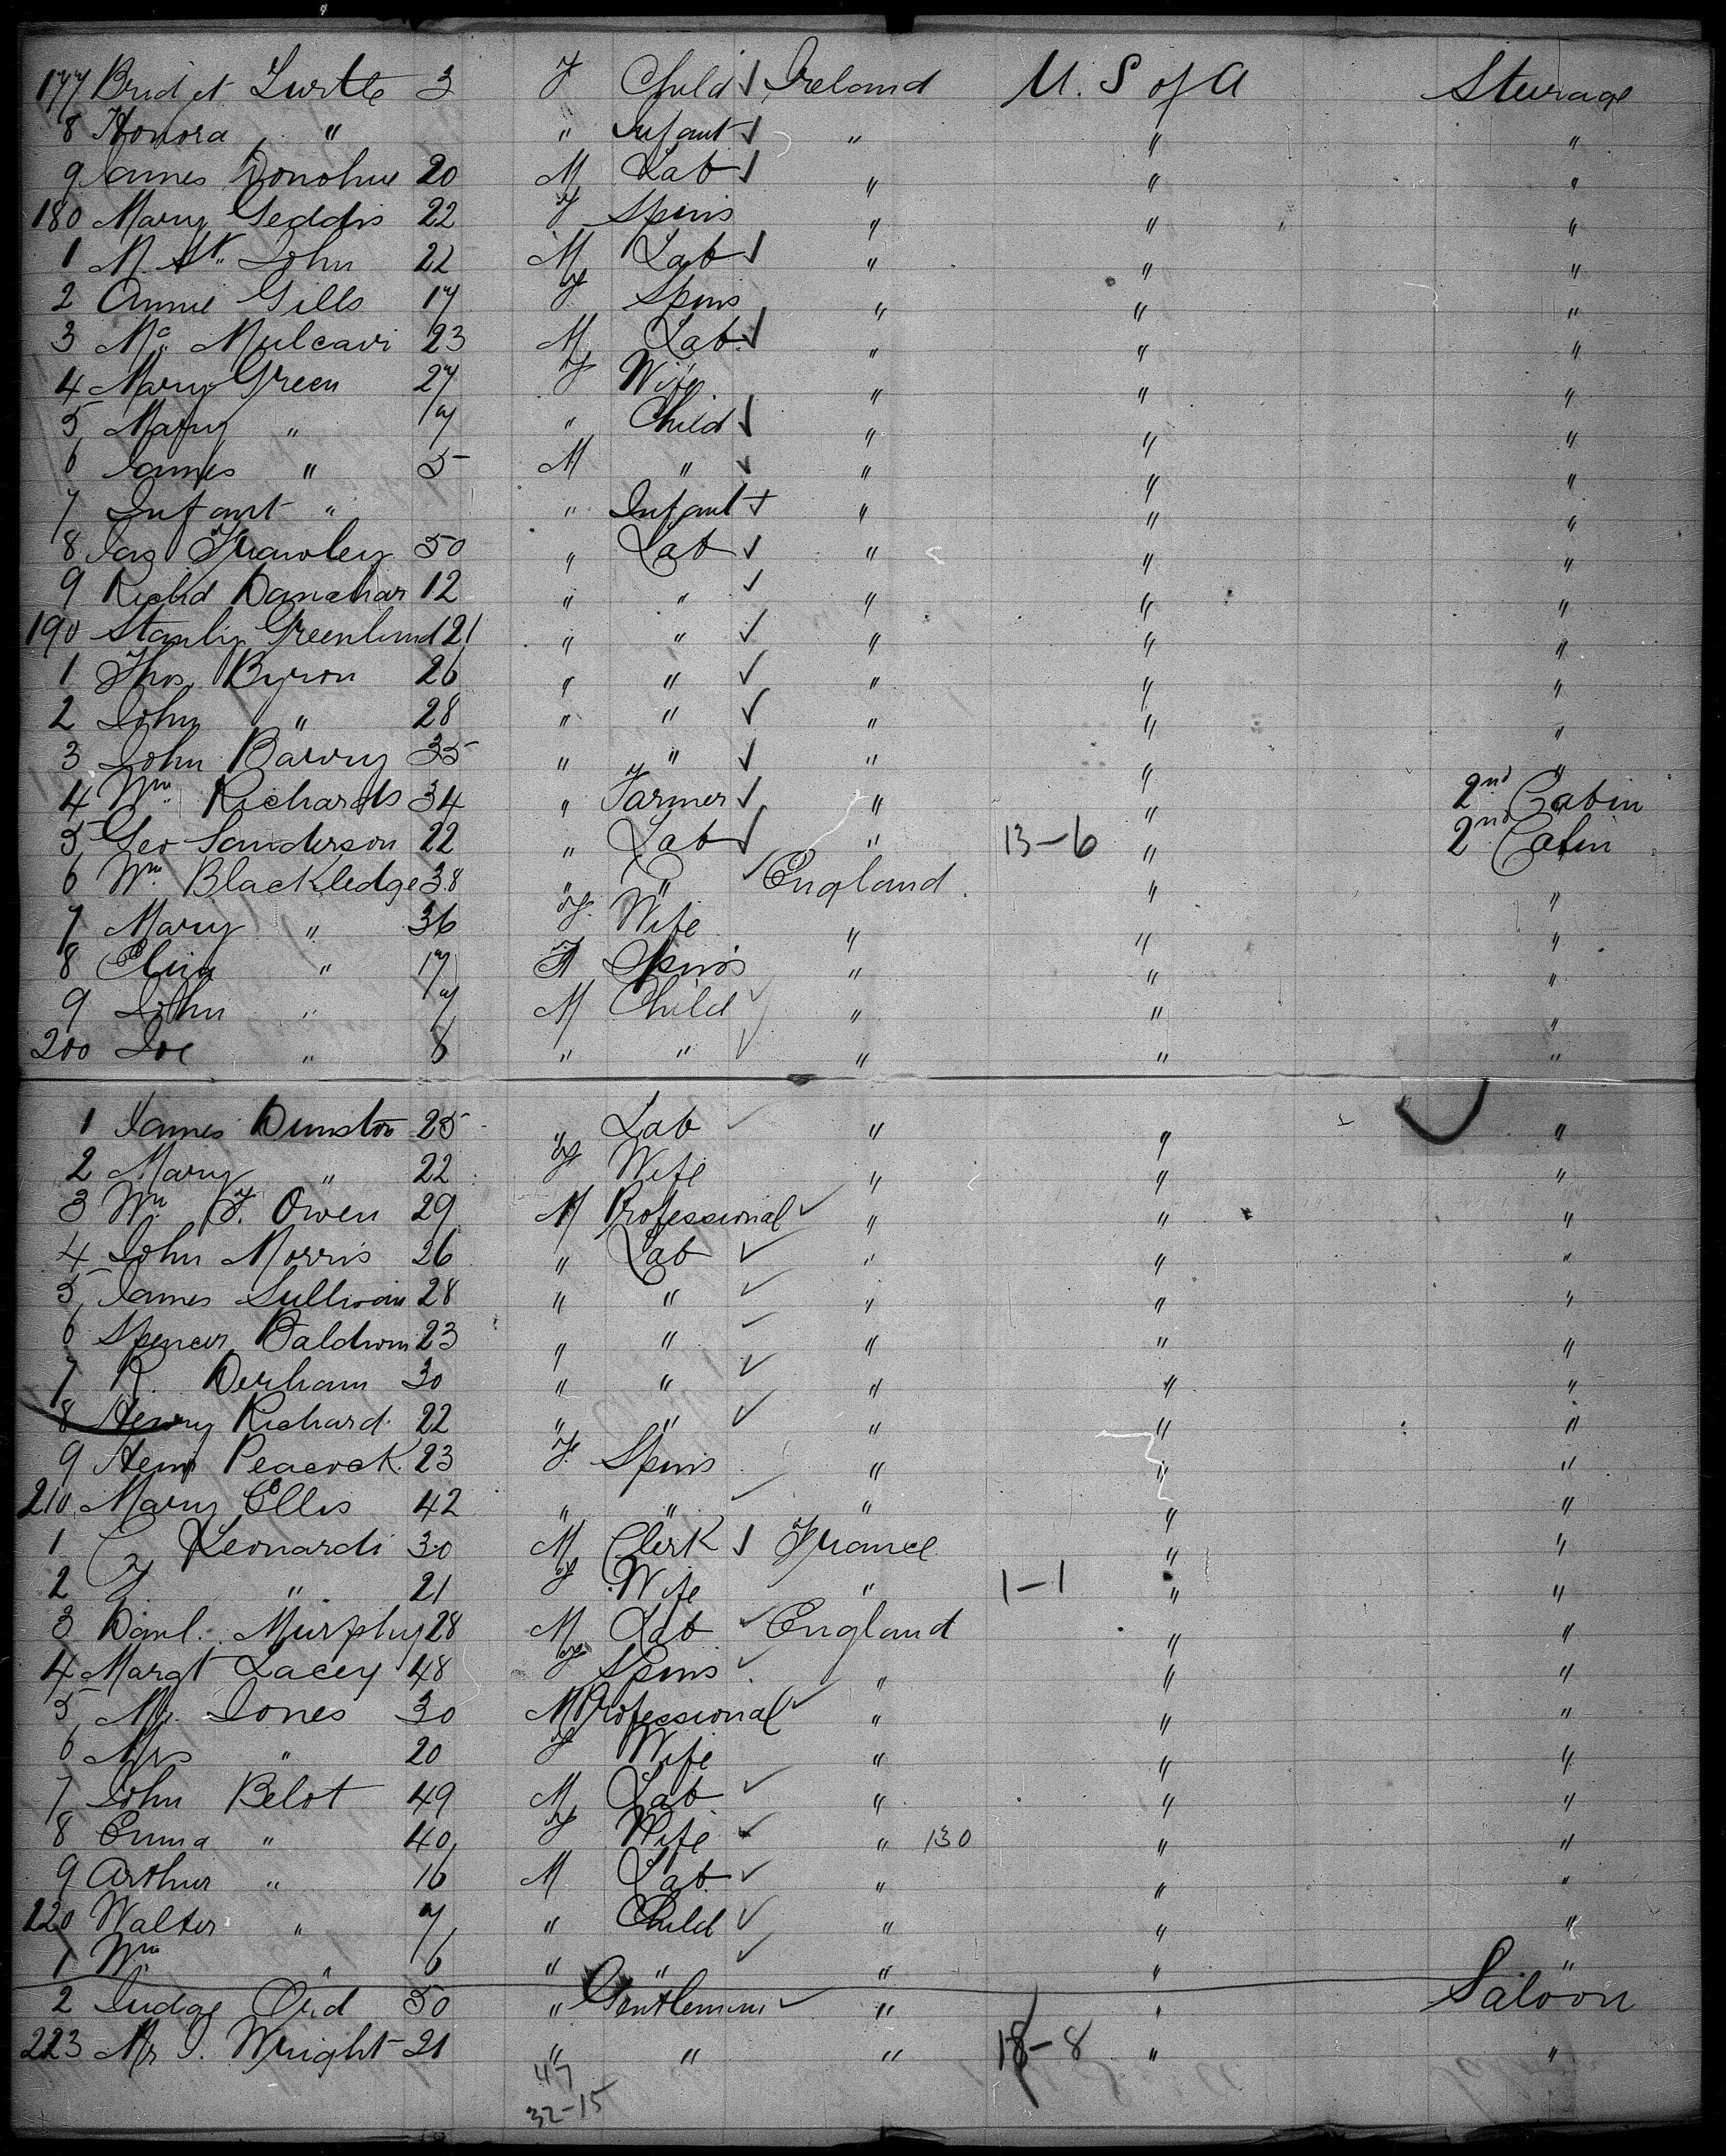 177 Bridjet Turtle 3 F Child ✓ Ireland U. S of A Steurage
8 Honora " " Infant ✓ " " "
9 James Donohue 20 M Lab ✓ " " "
180 Mary Geddis 22 F Spins " " "
1 M. St. John 22 M Lab ✓ " " "
2 Annie Gills 17 F Spins " " "
3 Mc. Mulcavi 23 M Lab ✓ " " "
4 Mary Green 27 F Wife " " "
5 Mary " 7 " Child ✓ " " "
6 James " 5 M " ✓ " " "
7 Infant " " Infant " " "
8 Jas Frawley 50 " Lab ✓ " " "
9 Richd Danahar 12 " " ✓ " " "
190 Stanly Greenlund 21 " " ✓ " " "
1 Thos Byron 26 " " ✓ " " "
2 John " 28 " " ✓ " " "
3 John Barry 35 " " ✓ " " "
4 Wm. Richards 34 " Farmer ✓ " " 2nd Cabin
5 Geo Sanderson 22 " Lab ✓ " 13-6 " 2nd Cabin
6 Wm. Blackledge 38 " " ✓ England " "
7 Mary " 36 F. Wife " " "
8 Eliza " 17 F Spins " " "
9 John " 7 M Child ✓ " " "
200 Joe " 6 " " ✓ " " "
1 James Dunston 25 " Lab ✓ " " "
2 Mary " 22 F Wife " " "
3 Wm. F. Owen 29 M Professional ✓ " " "
4 John Morris 26 " Lab ✓ " " "
5 James Sullivan 28 " " ✓ " " "
6 Spencer Baldwin 23 " " ✓ " " "
7 R. Derham 30 " " ✓ " " "
8 Henry Richard. 22 " " ✓ " " "
9 Peacock 23 F. Spins " " "
210 Mary Ellis 42 " " ✓ " " "
1 Leonardi 30 M Clerk ✓ France " "
2 " 21 F Wife " 1-1 " "
3 Danl. Murphy 28 M Lab ✓ England " "
4 Margt Lacey 48 F Spins ✓ " " "
5 Mr. Jones 30 M Professional ✓ " " "
6 Mrs " 20 F Wife " " "
7 John Belot 49 M Lab ✓ " " "
8 Emma " 40 F Wife ✓ " 130 " "
9 Arthur " 16 M Lab ✓ " " "
220 Walter " 7 " Child ✓ " " "
1 Wm " 6 " " ✓ " " "
2 Judge 50 " Gentleman ✓ " " Saloon
223 Mr J. Wright 21 " " " 18-8 " "
47
32-15